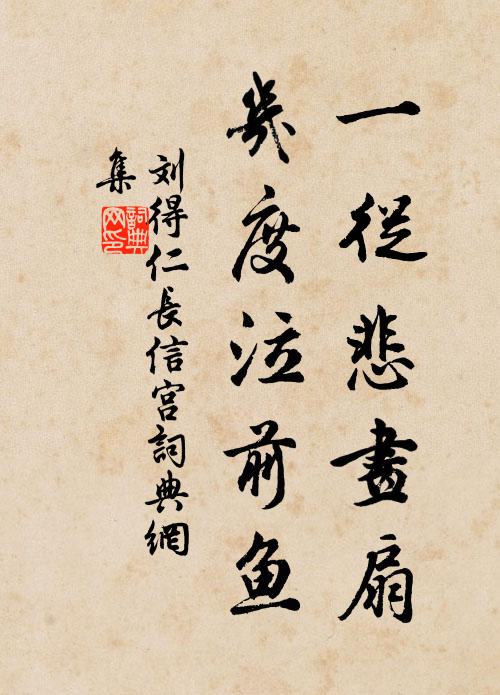 一從悲畫扇
幾度泣前鱼
刘得仁長信宫詞典網
集
詞典網印